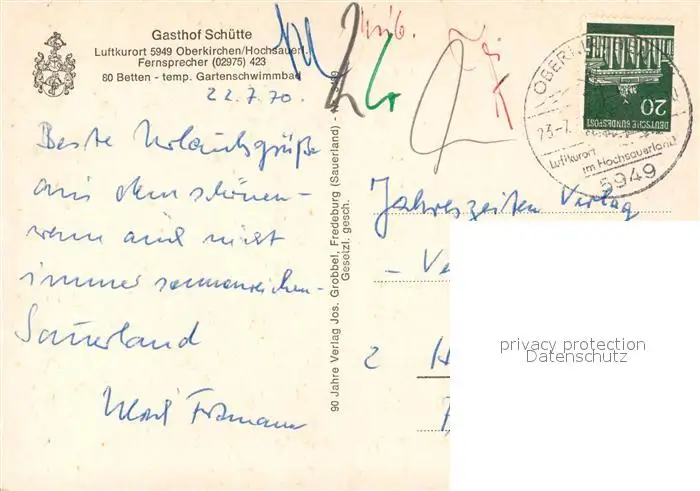 Gasthof Schütte
Luftkurort 5949 Oberkirchen/Hochsauerl.
Fernsprecher (02975) 423
80 Betten - temp. Gartenschwimmbad
22.7.70.
Beste Urlaubsgrüße
aus dem schönen -
wenn auch nicht
immer sonnenreichen -
Sauerland
90 Jahre Verlag Jos. Grobbel, Fredeburg (Sauerland) -
Gesetzl. gesch.
DEUTSCHE BUNDESPOST
20
23.-7.
Luftkurort
im Hochsauerland
5949
Jahreszeiten Verlag
- Ve
2 H
privacy protection
Datenschutz